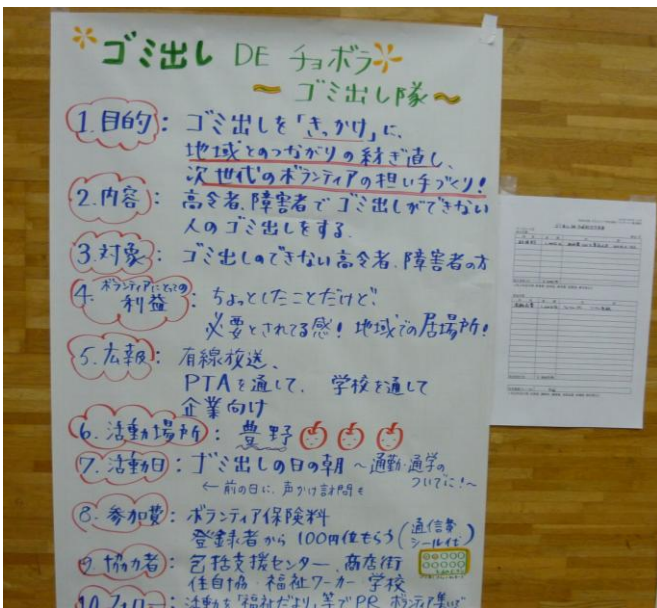 ゴミ出し DE チョボラ
〜 ゴミ出し隊 〜
1.目的: ゴミ出しを「きっかけ」に、
地域とのつながりの紡ぎ直し、
次世代のボランティアの担い手づくり!
2.内容: 高令者、障害者でゴミ出しができない
人のゴミ出しをする。
3.対象: ゴミ出しのできない高令者、障害者の方
4.ボランティアにとっての利益: ちょっとしたことだけど、
必要とされてる感! 地域での居場所!
5.広報: 有線放送、
PTAを通して、 学校を通して
企業向け
6.活動場所: 豊野
7.活動日: ゴミ出しの日の朝 〜通勤・通学の
ついでに!〜
← 前の日に、声かけ訪問も
8.参加費: ボランティア保険料
登録者から100円位もらう(通信費
シール代)
9.協力者: 包括支援センター、商店街
住自協・福祉ワーカー 学校
10.フォロー: 活動を「福祉だより」等でPR ボランティア集い